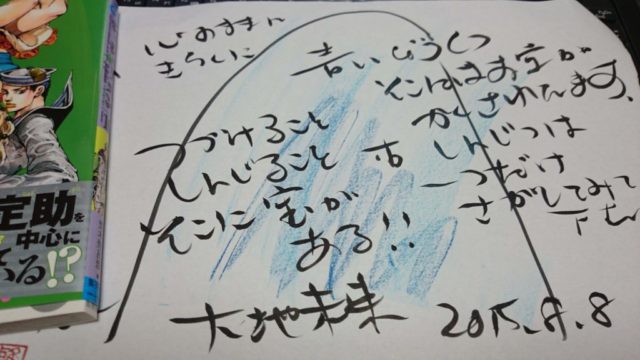 心の
きらいに
青いどうくつ
そこにはお宝が
かくされてます、
しんじつは
一つだけ
さがしてみて
下さい
つづけること
しんじること
そこに宝が
ある!!
大地未来 2015.8.8
定助を
中心に
いる!?